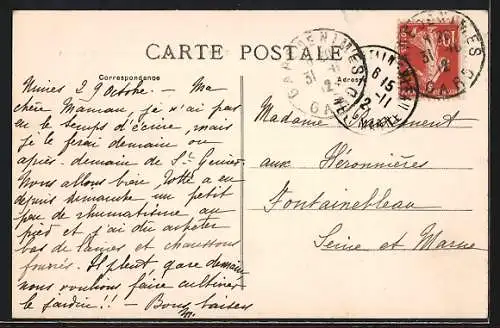 CARTE POSTALE
Correspondance
Adresse
Nimes 29 Octobre. - Ma
chère Maman, je n'ai pas
eu le temps d'écrire, mais
je le ferai demain ou
après-demain de St Geniès.
Nous allons bien. Totte a eu
depuis dimanche un petit
peu de rhumatisme au
pied et j'ai du acheter
bas de laines et chaussons
fourrés. Il pleut, gare demain
nous voulions faire cultiver
le jardin!! - Bons baisers
Madame
aux Héronnières
Fontainebleau
Seine et Marne
GARE DE NIMES
GARD
6 15
10